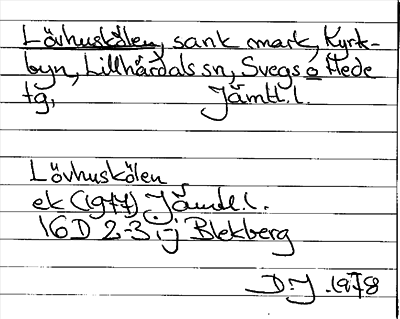 Lövhuskölen, sank mark, Kyrk-
byn, Lillhärdals sn, Svegs o Hede
tg, Jämtl.l.
Lövhuskölen
ek (1977) Jämtl.l.
16D 2-3 i-j Blekberg
D.J. 1978